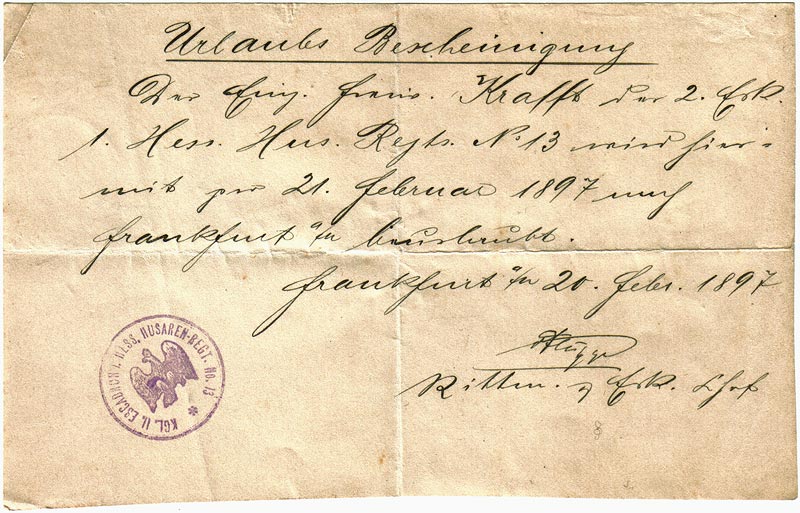 Urlaubs Bescheinigung
Der Einj. Freiw. Krafft der 2. Esk.
1. Hess. Hus. Regts. No 13 wird hier-
mit per 21. Februar 1897 nach
Frankfurt a/M beurlaubt.
Frankfurt a/M 20. Febr. 1897
Rittm. & Esk. Chef
KGL. II. ESCADRON 1. HESS. HUSAREN-REGT. No. 13